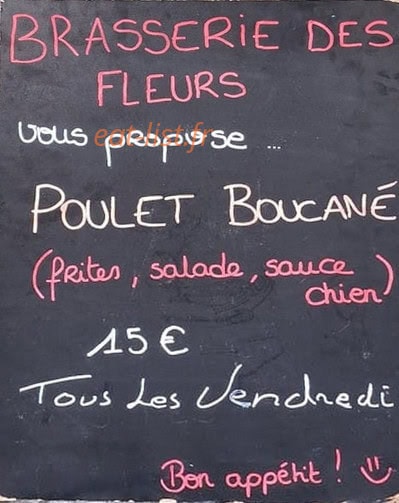 BRASSERIE DES
FLEURS
vous propose ...
eat-list.fr
POULET BOUCANÉ
(frites, salade, sauce
chien)
15€
Tous Les Vendredi
Bon appétit ! :)